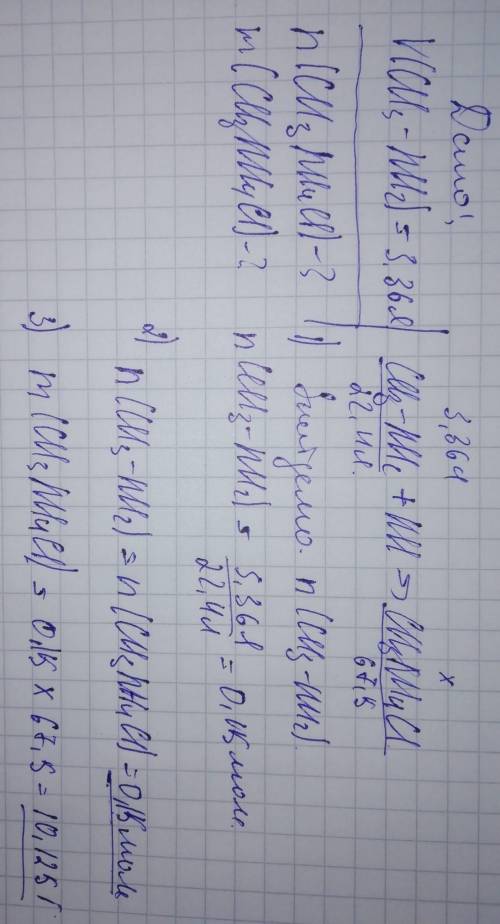 Дано:
V(CH3-NH2) = 3,36л
n(CH3NH4Cl)-?
m(CH3NH4Cl)-?
3,36л x
CH3-NH2 + HCl => CH3NH4Cl
22,4л. 67,5
1) Знайдемо n(CH3-NH2).
n(CH3-NH2) = 3,36л / 22,4л = 0,15 моль.
2) n(CH3-NH2) = n(CH3NH4Cl) = 0,15 моль
3) m(CH3NH4Cl) = 0,15 x 67,5 = 10,125 г